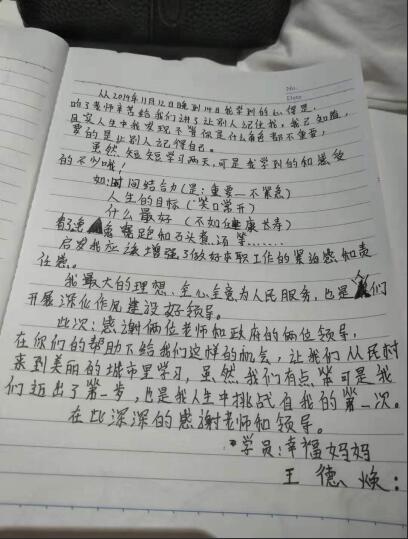 No.
Date
从2019年11月12日晚到14日我学到的心得是.
老师辛苦给我们讲了让别人记住我,我已知道,
其实人生中我发现不管你是什么角色都不重要,
要的是让别人记得自己。
虽然短短学习两天,可是我学到的和感受
的不少哦!
如:时间结合力(是:重要—不紧急)
人生的目标(笑口常开)
什么最好(不如健康长寿)
和石头煮汤等……
启发我应该增强了做好本职工作的紧迫感和责
任感。
我最大的理想、全心全意为人民服务,也是们
开展深化作风建设好领导。
此次:感谢俩位老师和政府的俩位领导,
在你们的帮助下给我们这样的机会,让我们从农村
来到美丽的城市里学习,虽然我们有点笨可是我
们迈出了第一步,也是我人生中挑战自我的第一次。
在此深深的感谢老师和领导。
学员:幸福妈妈
王德焕: